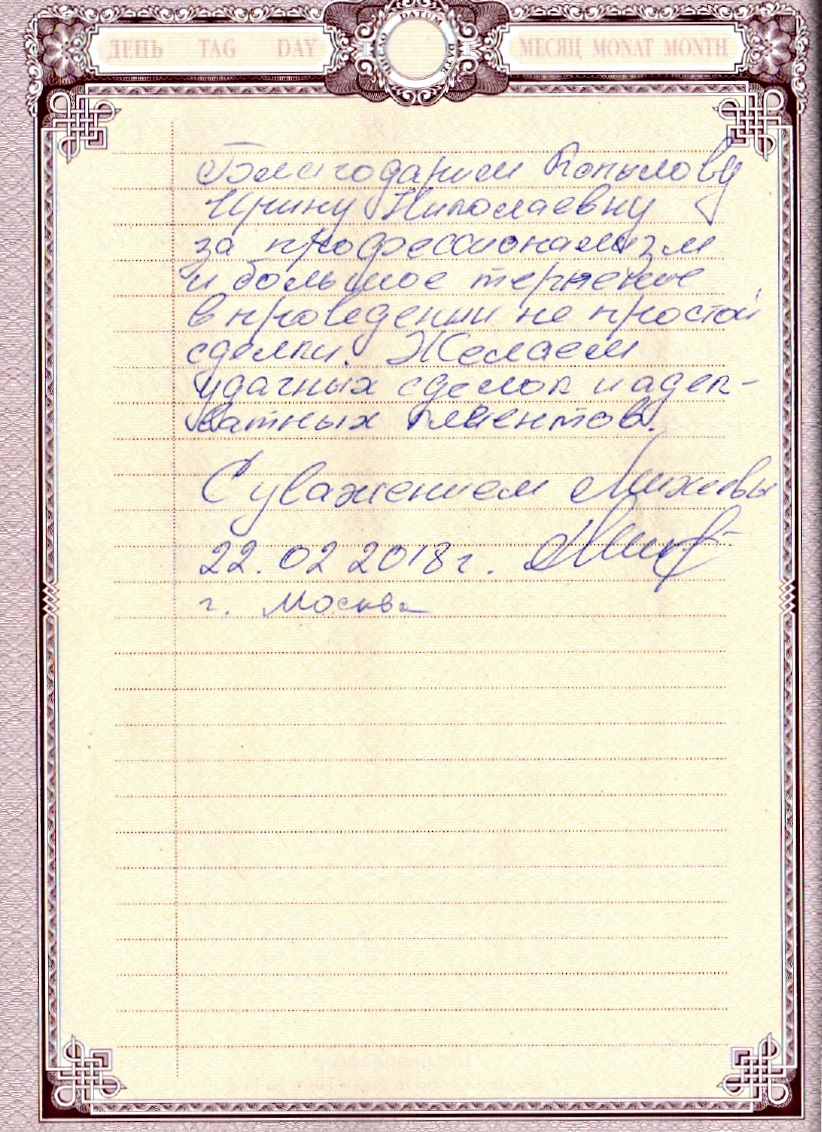 ДЕНЬ TAG DAY
DATUM
МЕСЯЦ MONAT MONTH
Благодарим Копылову
Ирину Николаевну
за профессионализм
и большое терпение
в проведении не простой
сделки. Желаем
удачных сделок и адек-
ватных клиентов.
С уважением
22.02 2018 г.
г. Москва